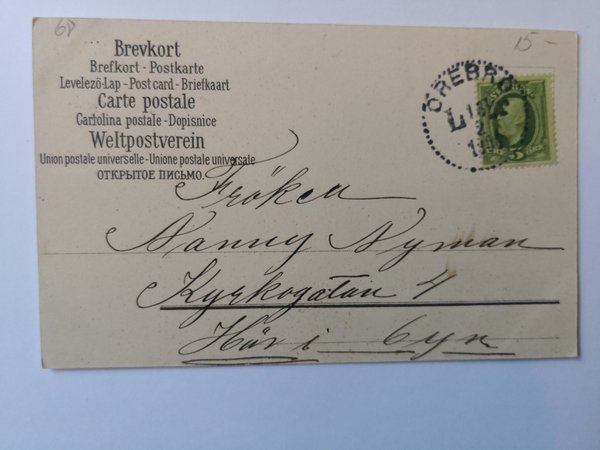 68
15-
Brevkort
Brefkort - Postkarte
Levelező-Lap - Post card - Briefkaart
Carte postale
Cartolina postale - Dopisnice
Weltpostverein
Union postale universelle - Unione postale universale
ОТКРЫТОЕ ПИСЬМО.
ÖREBRO
L
5
Fröken
Nanny Nyman
Kyrkogatan 4
Här i byn